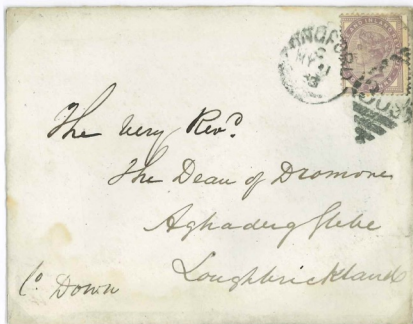 The Very Revd.
The Dean of Dromore
Aghaderg Glebe
Loughbrickland
Co. Down